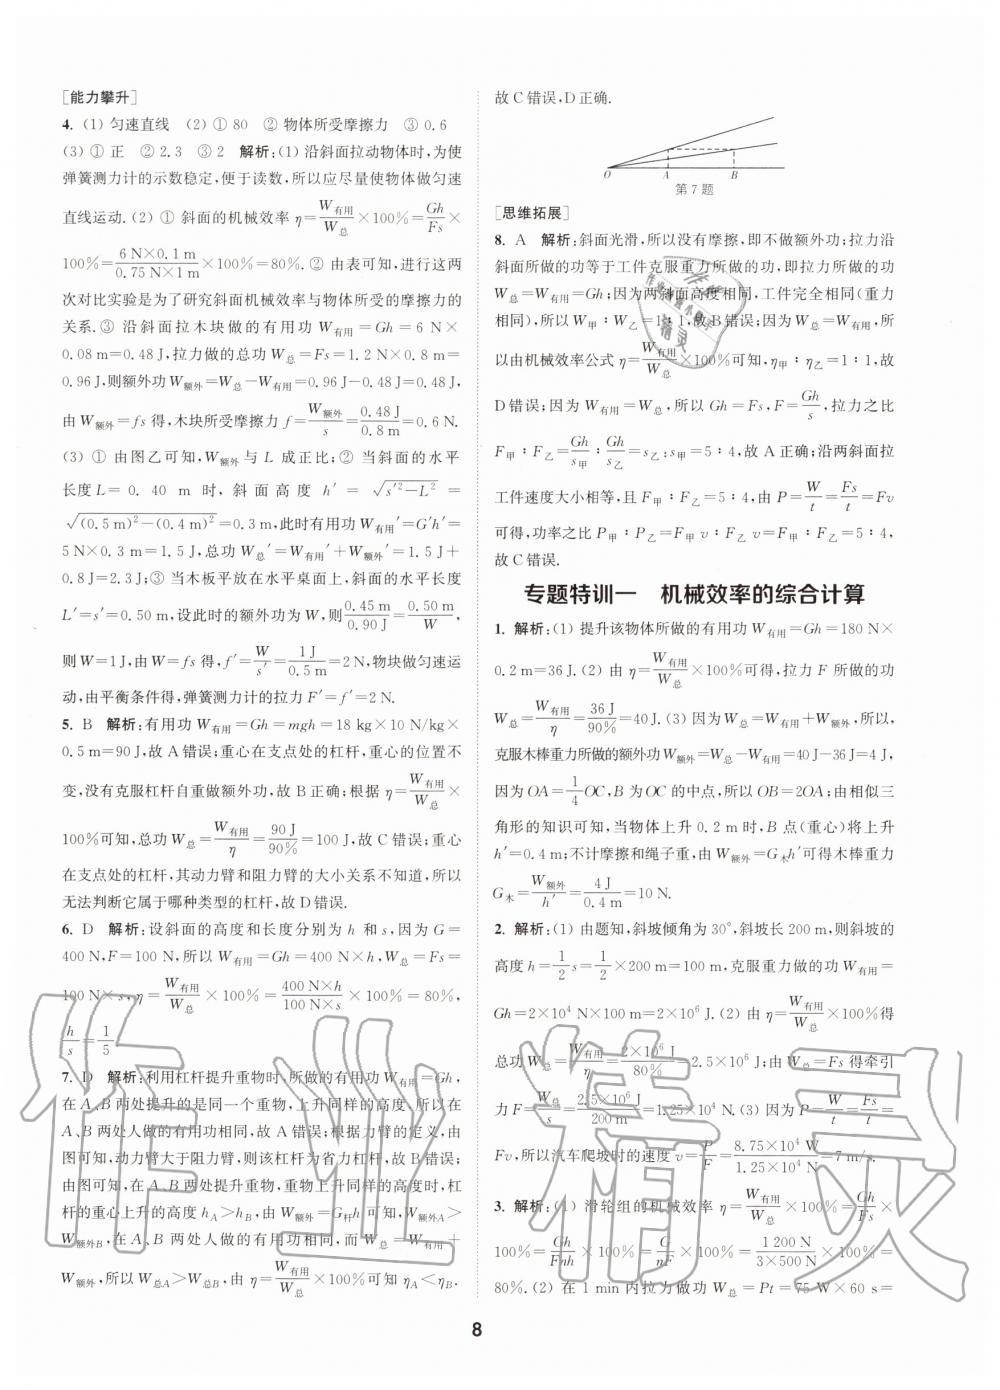 [能力攀升]
4. (1) 匀速直线 (2) ① 80 ② 物体所受摩擦力 ③ 0.6
(3) ① 正 ② 2.3 ③ 2 解析:(1) 沿斜面拉动物体时,为使
弹簧测力计的示数稳定,便于读数,所以应尽量使物体做匀速
直线运动.(2) ① 斜面的机械效率 η=W有用/W总×100%=Gh/Fs×
100%=6 N×0.1 m/0.75 N×1 m×100%=80%.② 由表可知,进行这两
次对比实验是为了研究斜面机械效率与物体所受的摩擦力的
关系.③ 沿斜面拉木块做的有用功 W有用=Gh=6 N×
0.08 m=0.48 J,拉力做的总功 W总=Fs=1.2 N×0.8 m=
0.96 J,则额外功 W额外=W总-W有用=0.96 J-0.48 J=0.48 J,
由 W额外=fs 得,木块所受摩擦力 f=W额外/s=0.48 J/0.8 m=0.6 N.
(3) ① 由图乙可知,W额外与 L 成正比;② 当斜面的水平
长度 L=0.40 m 时,斜面高度 h′=√(s′²-L²)=
√((0.5 m)²-(0.4 m)²)=0.3 m,此时有用功 W有用′=G′h′=
5 N×0.3 m=1.5 J,总功 W总′=W有用′+W额外′=1.5 J+
0.8 J=2.3 J;③ 当木板平放在水平桌面,斜面的水平长度
L′=s′=0.50 m,设此时的额外功为 W,则0.45 m/0.90 J=0.50 m/W,
则 W=1 J,由 W=fs 得,f′=W/s′=1 J/0.5 m=2 N,物块做匀速运
动,由平衡条件得,弹簧测力计的拉力 F′=f′=2 N.
5. B 解析:有用功 W有用=Gh=mgh=18 kg×10 N/kg×
0.5 m=90 J,故 A 错误;重心在支点处的杠杆,重心的位置不
变,没有克服杠杆自重做额外功,故 B 正确;根据 η=W有用/W总×
100%可知,总功 W总=W有用/η=90 J/90%=100 J,故 C 错误;重心
在支点处的杠杆,其动力臂和阻力臂的大小关系不知道,所以
无法判断它属于哪种类型的杠杆,故 D 错误.
6. D 解析:设斜面的高度和长度分别为 h 和 s,因为 G=
400 N,F=100 N,所以 W有用=Gh=400 N×h,W总=Fs=
100 N×s,η=W有用/W总×100%=400 N×h/100 N×s×100%=80%,
h/s=1/5.
7. D 解析:利用杠杆提升重物时,所做的有用功 W有用=Gh,
在 A、B 两处提升的是同一个重物,上升同样的高度,所以在
A、B 两处人做的有用功相同,故 A 错误;根据力臂的定义,由
图可知,动力臂大于阻力臂,则该杠杆为省力杠杆,故 B 错误;
由图可知,在 A、B 两处提升重物,重物上升同样的高度时,杠
杆的重心上升的高度 hA>hB,由 W额外=G杆h 可知,W额外A>
W额外B,在 A、B 两处人做的有用功相同,而 W总=W有用+
W额外,所以 W总A>W总B,由 η=W有用/W总×100%可知 ηA<ηB.
故 C 错误,D 正确.
O A B
第 7 题
[思维拓展]
8. A 解析:斜面光滑,所以没有摩擦,即不做额外功;拉力沿
斜面所做的功等于工件克服重力所做的功,即拉力所做的功
W总=W有用=Gh;因为两斜面高度相同,工件完全相同(重力
相同),所以 W甲∶W乙=1∶1,故 B 错误;因为 W总=W有用,所
以由机械效率公式 η=W有用/W总×100%可知,η甲∶η乙=1∶1,故
D 错误;因为 W有用=W总,所以 Gh=Fs,F=Gh/s,拉力之比
F甲∶F乙=Gh/s甲∶Gh/s乙=s乙∶s甲=5∶4,故 A 正确;沿两斜面拉
工件速度大小相等,且 F甲∶F乙=5∶4,由 P=W/t=Fs/t=Fv
可得,功率之比 P甲∶P乙=F甲v∶F乙v=F甲∶F乙=5∶4,
故 C 错误.
专题特训一 机械效率的综合计算
1. 解析:(1) 提升该物体所做的有用功 W有用=Gh=180 N×
0.2 m=36 J.(2) 由 η=W有用/W总×100%可得,拉力 F 所做的功
W总=W有用/η=36 J/90%=40 J.(3) 因为 W总=W有用+W额外,所以,
克服木棒重力所做的额外功 W额外=W总-W有用=40 J-36 J=4 J,
因为 OA=1/4OC,B 为 OC 的中点,所以 OB=2OA;由相似三
角形的知识可知,当物体上升 0.2 m 时,B 点(重心)将上升
h′=0.4 m;不计摩擦和绳子重,由 W额外=G木h′可得木棒重力
G木=W额外/h′=4 J/0.4 m=10 N.
2. 解析:(1) 由题知,斜坡倾角为 30°,斜坡长 200 m,则斜坡的
高度 h=1/2s=1/2×200 m=100 m,克服重力做的有用功 W有用=
Gh=2×10⁴ N×100 m=2×10⁶ J.(2) 由 η=W有用/W总×100%得
总功 W总=W有用/η=2×10⁶ J/80%=2.5×10⁶ J;由 W总=Fs 得牵引
力 F=W总/s=2.5×10⁶ J/200 m=1.25×10⁴ N.(3) 因为 P=W/t=Fs/t=
Fv,所以汽车爬坡时的速度 v=P/F=8.75×10⁴ W/1.25×10⁴ N=7 m/s.
3. 解析:(1) 滑轮组的机械效率 η=W有用/W总×100%=Gh/Fs×
100%=Gh/Fnh×100%=G/nF×100%=1 200 N/3×500 N×100%=
80%.(2) 在 1 min 内拉力做功 W总=Pt=75 W×60 s=
8
作业精灵